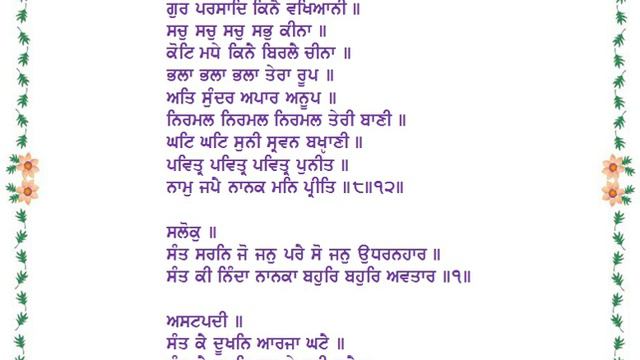 ਗੁਰ ਪਰਸਾਦਿ ਕਿਨੈ ਵਖਿਆਨੀ ॥
ਸਚੁ ਸਚੁ ਸਚੁ ਸਭੁ ਕੀਨਾ ॥
ਕੋਟਿ ਮਧੇ ਕਿਨੈ ਬਿਰਲੈ ਚੀਨਾ ॥
ਭਲਾ ਭਲਾ ਭਲਾ ਤੇਰਾ ਰੂਪ ॥
ਅਤਿ ਸੁੰਦਰ ਅਪਾਰ ਅਨੂਪ ॥
ਨਿਰਮਲ ਨਿਰਮਲ ਨਿਰਮਲ ਤੇਰੀ ਬਾਣੀ ॥
ਘਟਿ ਘਟਿ ਸੁਨੀ ਸ੍ਰਵਨ ਬਖੵਾਣੀ ॥
ਪਵਿਤ੍ਰ ਪਵਿਤ੍ਰ ਪਵਿਤ੍ਰ ਪੁਨੀਤ ॥
ਨਾਮੁ ਜਪੈ ਨਾਨਕ ਮਨਿ ਪ੍ਰੀਤਿ ॥੮॥੧੨॥
ਸਲੋਕੁ ॥
ਸੰਤ ਸਰਨਿ ਜੋ ਜਨੁ ਪਰੈ ਸੋ ਜਨੁ ਉਧਰਨਹਾਰ ॥
ਸੰਤ ਕੀ ਨਿੰਦਾ ਨਾਨਕਾ ਬਹੁਰਿ ਬਹੁਰਿ ਅਵਤਾਰ ॥੧॥
ਅਸਟਪਦੀ ॥
ਸੰਤ ਕੈ ਦੂਖਨਿ ਆਰਜਾ ਘਟੈ ॥